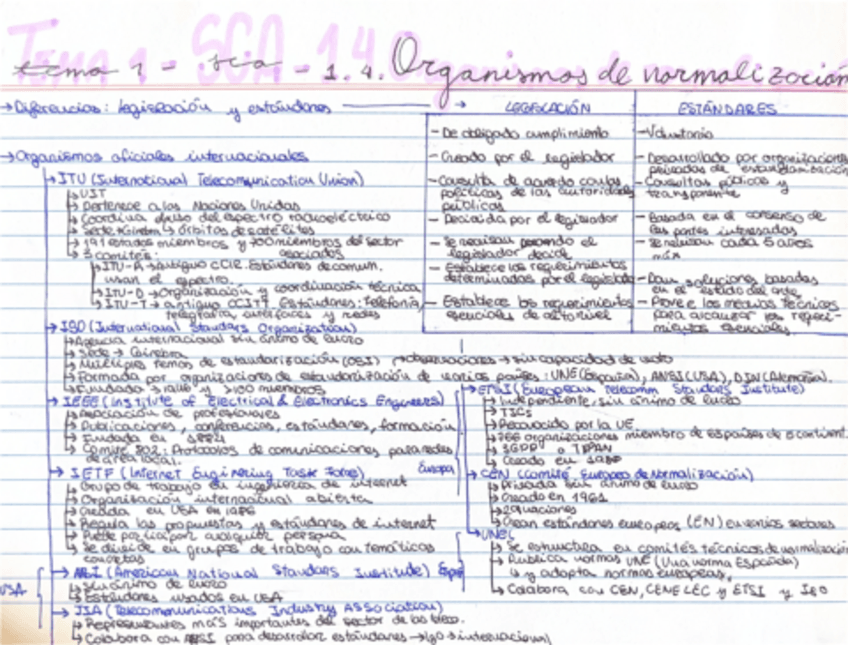 Tema 1 - SCA - 1.4. Organismos de normalización
→ Diferencias: legislación y estándares → LEGISLACIÓN ESTÁNDARES
- De obligado cumplimiento - Voluntario
- Creado por el legislador - Desarrollado por organizaciones privadas de estandarización
- Consulta de acuerdo con las políticas de las autoridades públicas - Consultas públicas y transparente
- Decidida por el legislador - Basada en el consenso de las partes interesadas
- Se revisan cuando el legislador decide - Se revisan cada 5 años máx
- Establece los requerimientos determinados por el legislador - Dan soluciones basadas en el estado del arte
- Establece los requerimientos esenciales de alto nivel - Provee los medios técnicos para alcanzar los requerimientos esenciales.
→ Organismos oficiales internacionales
→ ITU (International Telecommunication Union)
↳ UIT
↳ Pertenece a las Naciones Unidas
↳ Coordina el uso del espectro radioeléctrico
↳ Sede → Ginebra ↳ órbitas de satélites
↳ 191 estados miembros y 700 miembros del sector
↳ 3 comités: asociados
↳ ITU-R → Antiguo CCIR. Estándares de comun.
usan el espectro.
↳ ITU-D → Organización y coordinación técnica
↳ ITU-T → antiguo CCITT Estándares: Telefonía,
telegrafía, interfaces y redes
→ ISO (International Standars Organization)
↳ Agencia internacional sin ánimo de lucro
↳ Sede → Ginebra
↳ Múltiples temas de estandarización (OSI) → observaciones → sin capacidad de voto
↳ Formada por organizaciones de estandarización de varios países: UNE (España), ANSI (USA), DIN (Alemania).
↳ Fundada y >100 miembros
→ IEEE (Institute of Electrical & Electronics Engineers)
↳ Asociación de profesionales
↳ Publicaciones, conferencias, estándares, formación
↳ Fundada en 1884
↳ Comité 802: Protocolos de comunicaciones para redes
de área local.
→ IETF (Internet Enginering Task Force)
↳ Grupo de trabajo en ingeniería de internet
↳ Organización internacional abierta
↳ Creada en USA en 1986
↳ Regula las propuestas y estándares de internet
↳ Puede participar cualquier persona
↳ Se divide en grupos de trabajo con temáticas
concretas
Europa
→ ETSI (European Telecomm Standars Institute)
↳ Independiente, sin ánimo de lucro
↳ TICs
↳ Reconocido por la UE
↳ 766 organizaciones miembro de países de continent.
↳ 3GPP o
↳ Creado en
→ CEN (Comité Europeo de Normalización)
↳ Privada sin ánimo de lucro
↳ Creado en 1961
↳ naciones
↳ Crean estándares europeos (EN) en varios sectores
Espa
→ UNE
↳ Se estructura en comités técnicos de normalización
↳ Publica normas UNE (Una norma Española)
↳ y adopta normas europeas.
↳ Colabora con CEN, CENELEC y ETSI y ISO
USA
→ ANSI (American National Standars Institute)
↳ Sin ánimo de lucro
↳ Estándares usados en USA
→ TIA (Telecommunications Industry Association)
↳ Representantes más importantes del sector de las teleco.
↳ Colabora con ANSI para desarrollar estándares → Igo → internacional